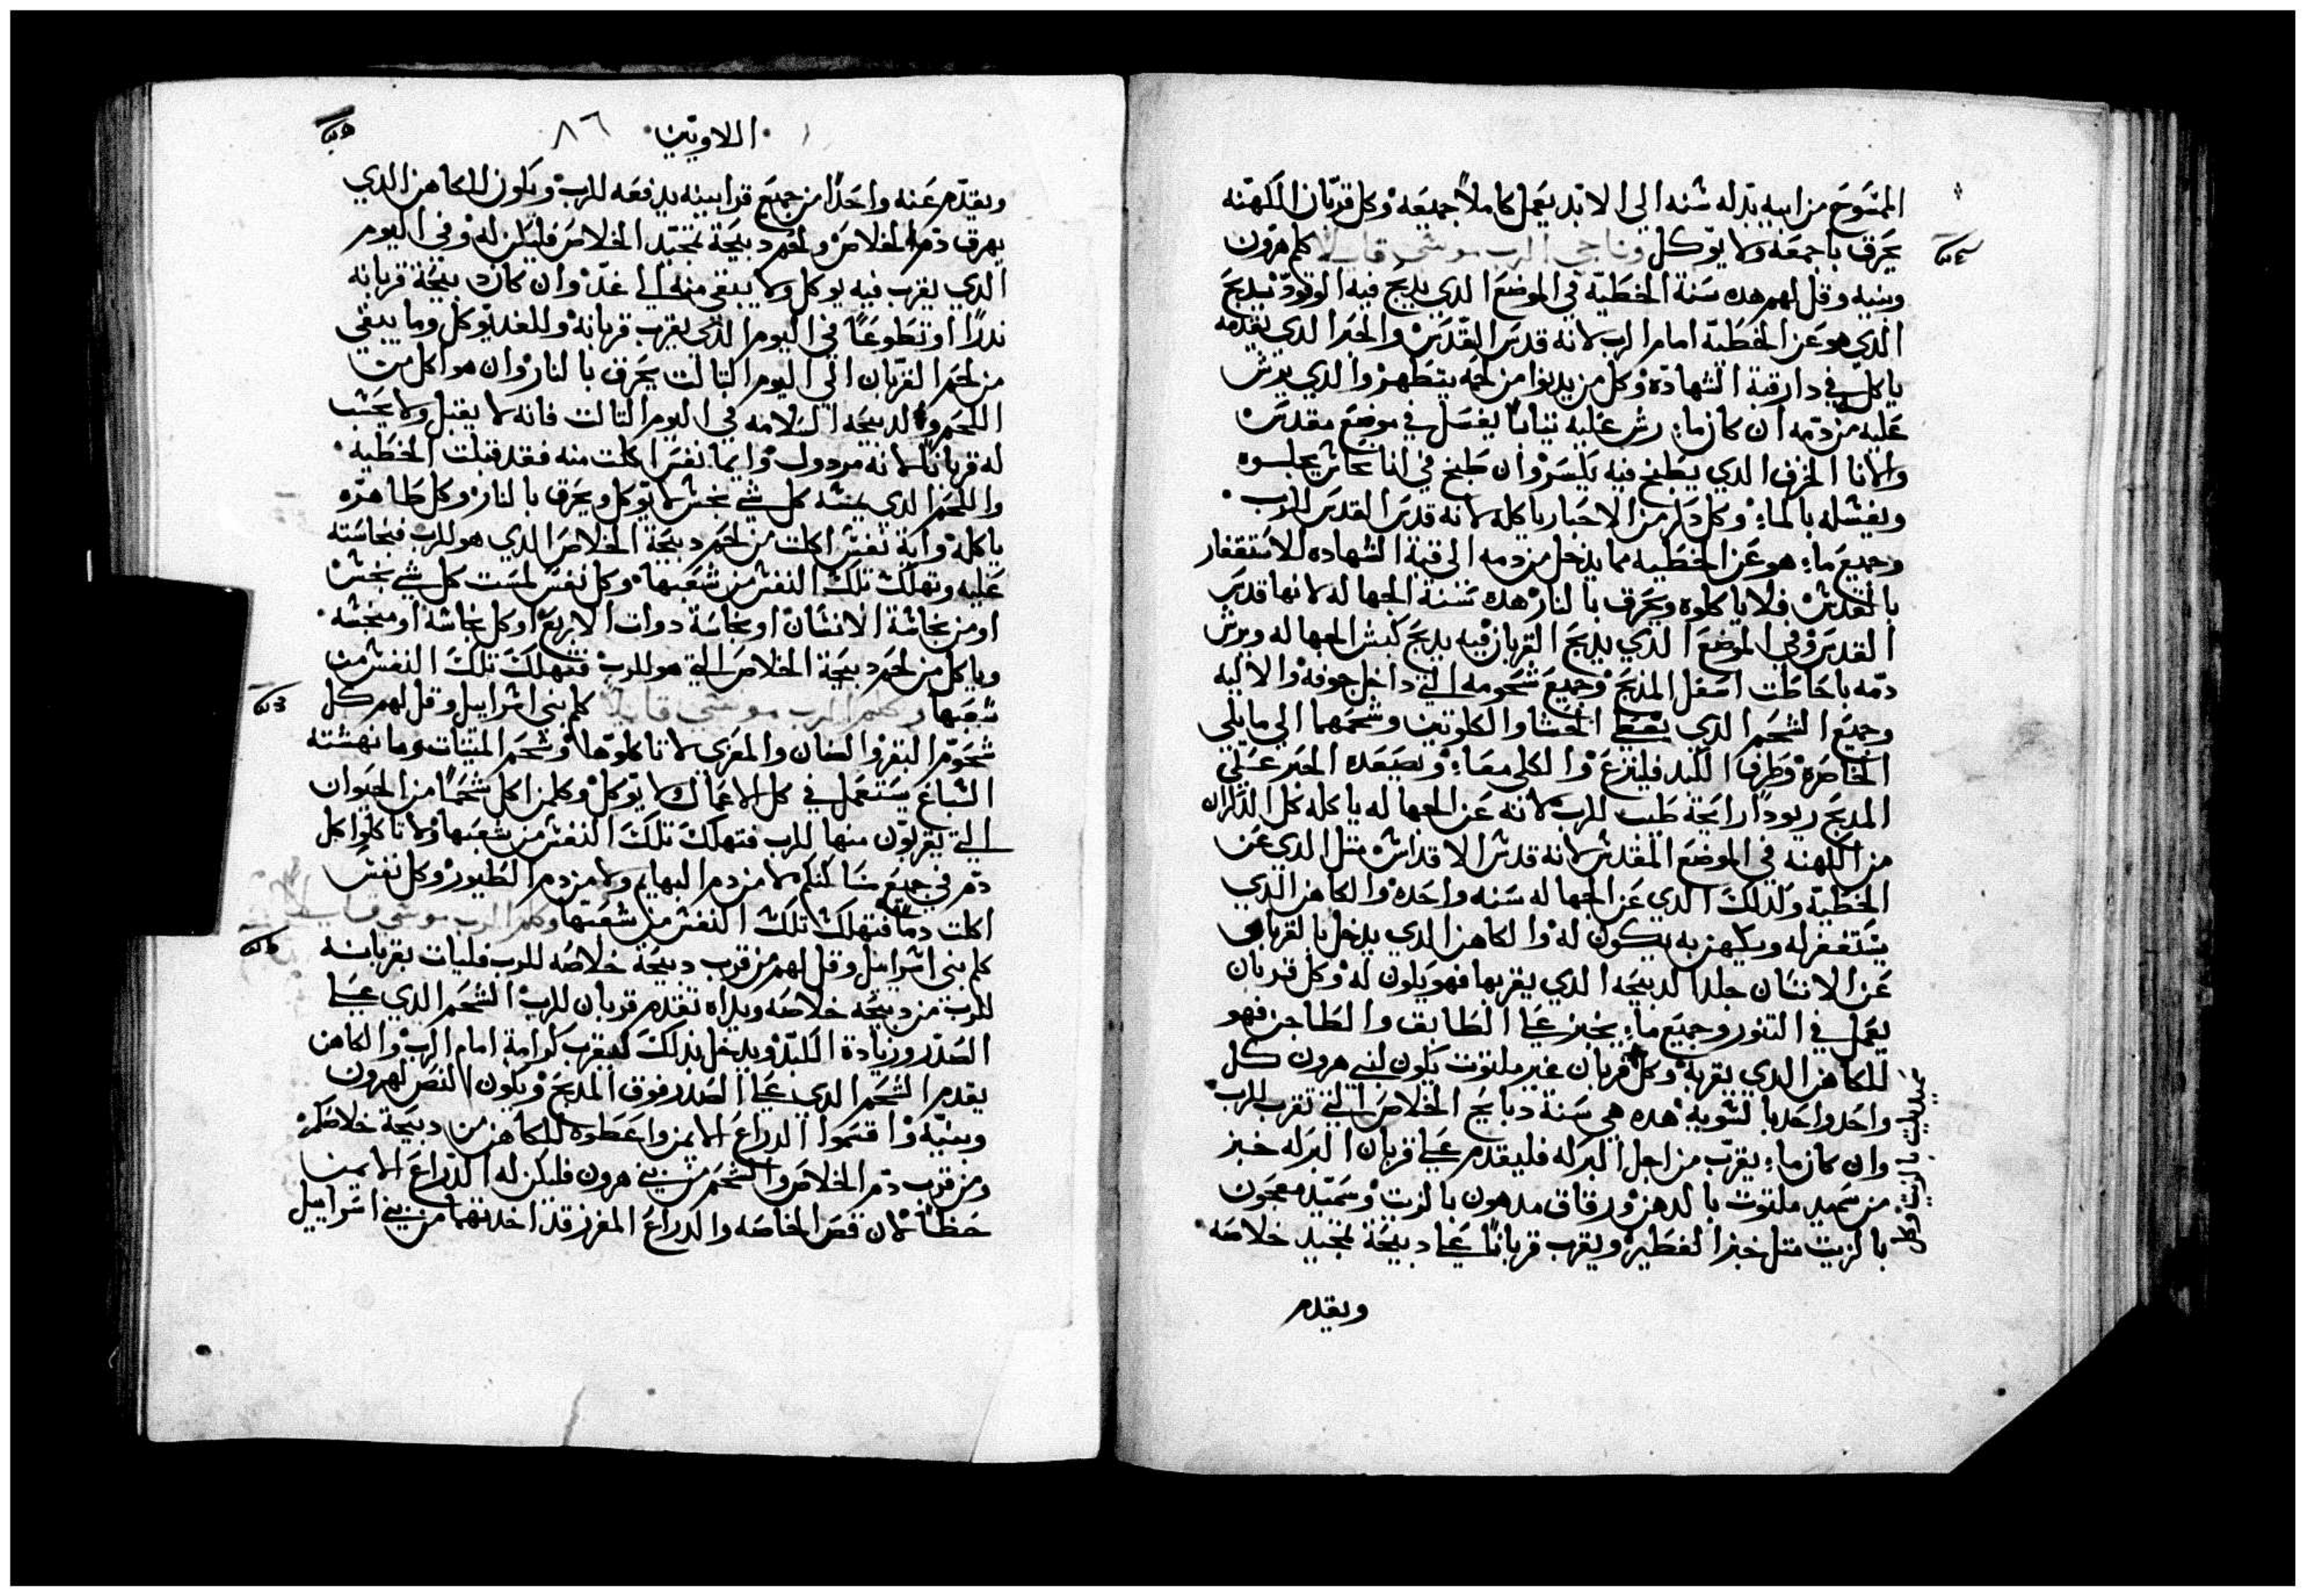 الممسَوحَ من ابيه بدله سُنه الي الابد يعَمل كاملاً جميعَه وكل قربان الكهنه
يحَرق باجمعَه ولا يوكل وناجي الرب موسي قايلا كلم هرون
وبنيه وقل لهم هده سَنة الخطَية في الموضعَ الدي يدبح فيه الوقود تدبحَ
الدي هو عَن الخطَيه امام الرب لانه قدسَ القدسَ والحبر الدي يقدمه
ياكله في دار قبة الشهادة وكل من يدنوا من لحمه يتطهر والدي يرش
عَليه من دمه ان كان ما رش عَليه تياباً يغسَل في موضعَ مقدسَ
والانا الخزف الدي يطبخ فيه يكسَر وان طَبخ في انا نحاس يجلسوه
ويغسَله بالماء وكل دكر من الاحبار ياكله لانه قدسَ القدسَ للرب
وجميعَ ما هو عَن الخطَيه مما يدخل من دمه الي قبة الشهاده للاستغفار
بالقدس فلا ياكلوه ويحرق بالنار هده سَنة الجهاله لانها قدسَ
القدسَ وفي الموضعَ الدي يدبحَ القربان فيه يدبحَ كبش الجهاله ويرش
دمه باحَاطَت اسَفل المدبحَ وجميعَ شحَومه التي داخل جوفه والاليه
وجميعَ الشحَم الدي يغطي الحَشا والكلوتين وشحَمهما الي ما يلي
الخاصَره وطَرف الكبد فلينزعَ والكلي معَا ويصَعَده الحبر عَلي
المدبحَ ريودا رايحَة طيب للرب لانه عَن الجهاله ياكله كل الدكران
من الكهنه في الموضعَ المقدس لانه قدس الاقداس متل الدي عَن
الخطَية وكدلك الدي عَن الجهاله سَنه واحَده والكاهن الدي
يستغفر له ويكهن به يكون له والكاهن الدي يدخل بالقربان
عَن الانسَان جلد الدبيحَه الدي يقربها فهو يكون له وكل قربان
يعَمل في التنور وجميعَ ما يخبز عَلي الطَابق والطَاجن فهو
للكاهن الدي يقربه وكل قربان غير ملتوت يكون لبني هرون كل
واحَد واحَد بالسَويه هده هي سَنة دبايح الخلاصَ التي تقرب للرب
وان كان ما يقرب من اجل البركه فليقدم عَلي قربان البركه خبز
من سَميد ملتوت بالدهن ورقاق مدهون بالزيت وسَميد معجون
بالزيت متل خبز الفطَير ويقرب قرباناً عَلي دبيحَة تمجيد خلاصَه
ويقدم
اللاويين ٨٦
ويقدم عَنه واحَداً من جميعَ قرابينه يدفعَه للرب ويكون للكاهن الدي
يهرق دم الخلاصَ ولحَم دبيحَة تمجيد الخلاصَ فليكن له وفي اليوم
الدي يقرب فيه يوكل ولا يبقي منه الي غد وان كان دبيحَة قربانه
ندراً او تطَوعَاً في اليوم الدي يقرب قربانه وللغد يوكل وما يبقي
من لحَم القربان الي اليوم التالت يحَرق بالنار وان هو اكل من
اللحَم ولدبيحَه السَلامه في اليوم التالت فانه لا يقبل ولا يحَسَب
له قرباناً لانه مردول وايما نفسَ اكلت منه فقد قبلت الخطَيه
واللحَم الدي يمسَه كل شي نجس لا يوكل ويحَرق بالنار وكل طَاهره
ياكله واية نفس اكلت من لحَم دبيحَة الخلاصَ الدي هو للرب فنجاسَته
عَليه وتهلك تلك النفس من شعَبها وكل نفسَ لمسَت كل شي نجس
او من نجاسَة الانسَان او نجاسَة دوات الاربعَ او كل نجاسَه او منجسَه
وياكل من لحَم دبيحَة الخلاصَ التي هو للرب فتهلك تلك النفس من
شعَبها وكلم الرب موسي قايلاً كلم بني اسَراييل وقل لهم كل
شحَوم البقر والضان والمعَزي لا تاكلوها وشحَم الميتات وما نهشته
السَباعَ يسَتعَمل في كل الاعَمال لا يوكل وكلمن اكل شحَماً من الحيوان
التي يقربون منها للرب فتهلك تلك النفس من شعَبها ولا تاكلوا كل
دم في جميعَ مسَاكنكم لا من دم البهايم ولا من دم الطيور وكل نفسَ
اكلت دماً فتهلك تلك النفس من شعَبها وكلم الرب موسي قايلا
كلم بني اسَراييل وقل لهم من قرب دبيحَة خلاصَه للرب فليات بقربانه
للرب من دبيحَة خلاصَه ويداه تقدم قربان للرب الشحَم الدي عَلي
الصَدر وزيادة الكبد ويدخل بدلك ليقرب كرامة امام الرب والكاهن
يقدم الشحَم الدي عَلي الصَدر فوق المدبحَ ويكون القصَ لهرون
وبنيه واقسَموا الدراعَ الايمن واعَطوه للكاهن من دبيحَة خلاصَكم
ومن قرب دم الخلاصَ والشحَم من بني هرون فليكن له الدراعَ الايمن
حَظاً لان قصَ الخاصَه والدراعَ المفرز قد اخدتهما من بني اسَراييل